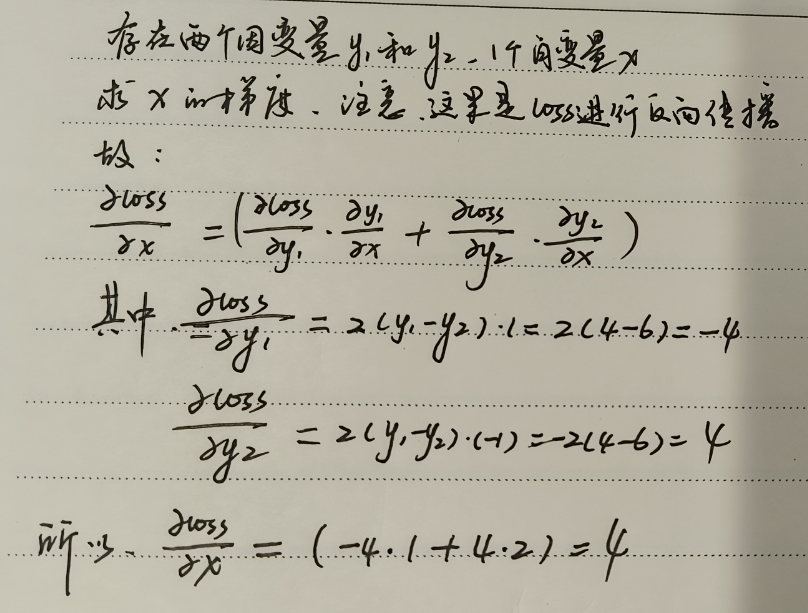 存在两个因变量 y₁ 和 y₂、1个自变量 x
求 x 的梯度、注意、这里是loss进行反向传播
故：
∂loss/∂x = (∂loss/∂y₁ · ∂y₁/∂x + ∂loss/∂y₂ · ∂y₂/∂x)
其中、∂loss/∂y₁ = 2(y₁-y₂)·1 = 2(4-6) = -4
∂loss/∂y₂ = 2(y₁-y₂)·(-1) = -2(4-6) = 4
所以、∂loss/∂x = (-4·1+4·2) = 4